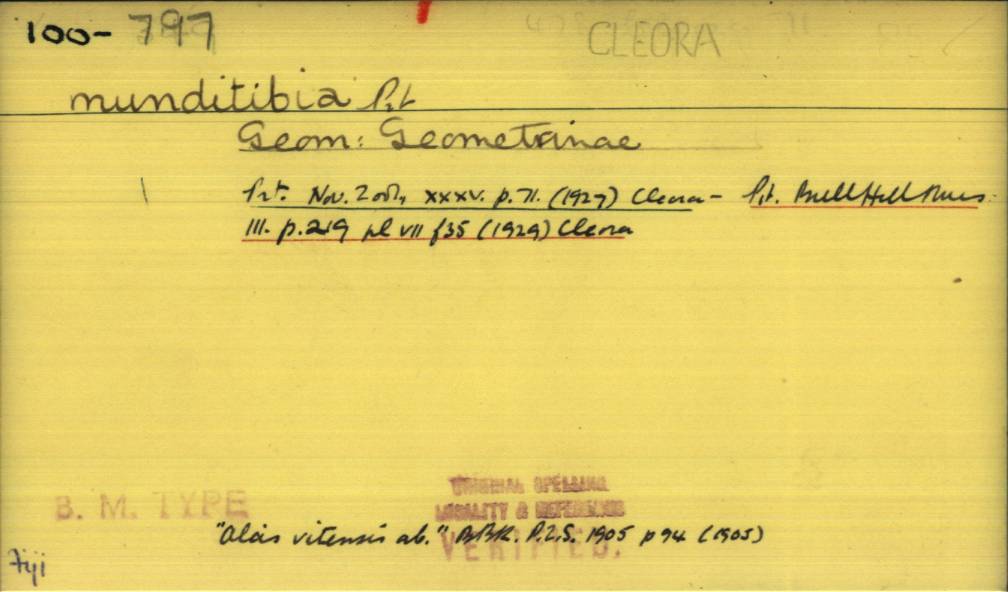 100-797
CLEORA
munditibia Prt
Geom: Geometrinae
Prt. Nov. Zool., xxxv. p. 71. (1927) Cleora - Prt. Bull Hill Mus.
III. p. 219 pl VII f35 (1929) Cleora
B. M. TYPE
ORIGINAL SPELLING
LOCALITY & REFERENCE
VERIFIED.
"Alcis vitensis ab." BBK. P.Z.S. 1905 p 94 (1905)
Fiji